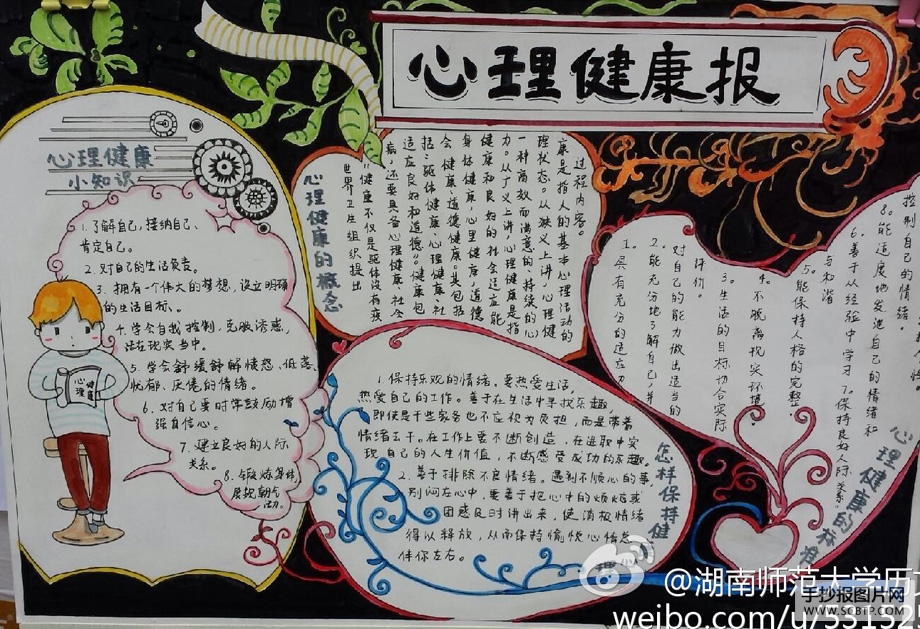 心理健康报
心理健康
小知识
1.了解自己,接纳自己、
肯定自己。
2.对自己的生活负责。
3.拥有一个伟大的梦想,设立明确
的生活目标。
4.学会自我控制,克服诱惑,
活在现实当中。
5.学会舒缓舒解愤怒、低落
忧郁、厌倦的情绪。
6.对自己要时常鼓励增
强自信心。
7.建立良好的人际
关系。
8.
心理健康
心理健康的概念
世界卫生组织提出
“健康不仅是躯体没有疾
病,还要具备心理健康、社会
适应良好和道德”健康包
括:躯体健康、心理健康、社
会健康、道德健康。
理状态。从狭义上讲,心理健
康是指人的基本心理活动的
过程内容。
怎样保持健
1.保持乐观的情绪。要热爱生活,
热爱自己的工作。善于在生活中寻找乐趣,
即使是干些家务也不应视为负担,而是带着
情绪去干。在工作上要不断创造,在进取中实
现自己的人生价值,不断感受成功的乐趣。
2.善于排除不良情绪。遇到不顺心的事,
别闷在心中,要善于把心中的烦恼或
困惑及时讲出来,使消极情绪
得以释放,从而保持愉快心情总
伴你左右。
心理健康的标准
1。具有充分的适应力。
2。能充分地了解自己,并
对自己的能力做出适当的
评价。
3。生活的目标切合实际
4。不脱离现实环境。
5。能保持人格的完整
与和谐
6。善于从经验中学习 7。保持良好人际关系。
8。能适度地发泄自己的情绪和
控制自己的情绪。
@湖南师范大学历
weibo.com/u/5515
手抄报图片网
www.SCBTP.COM